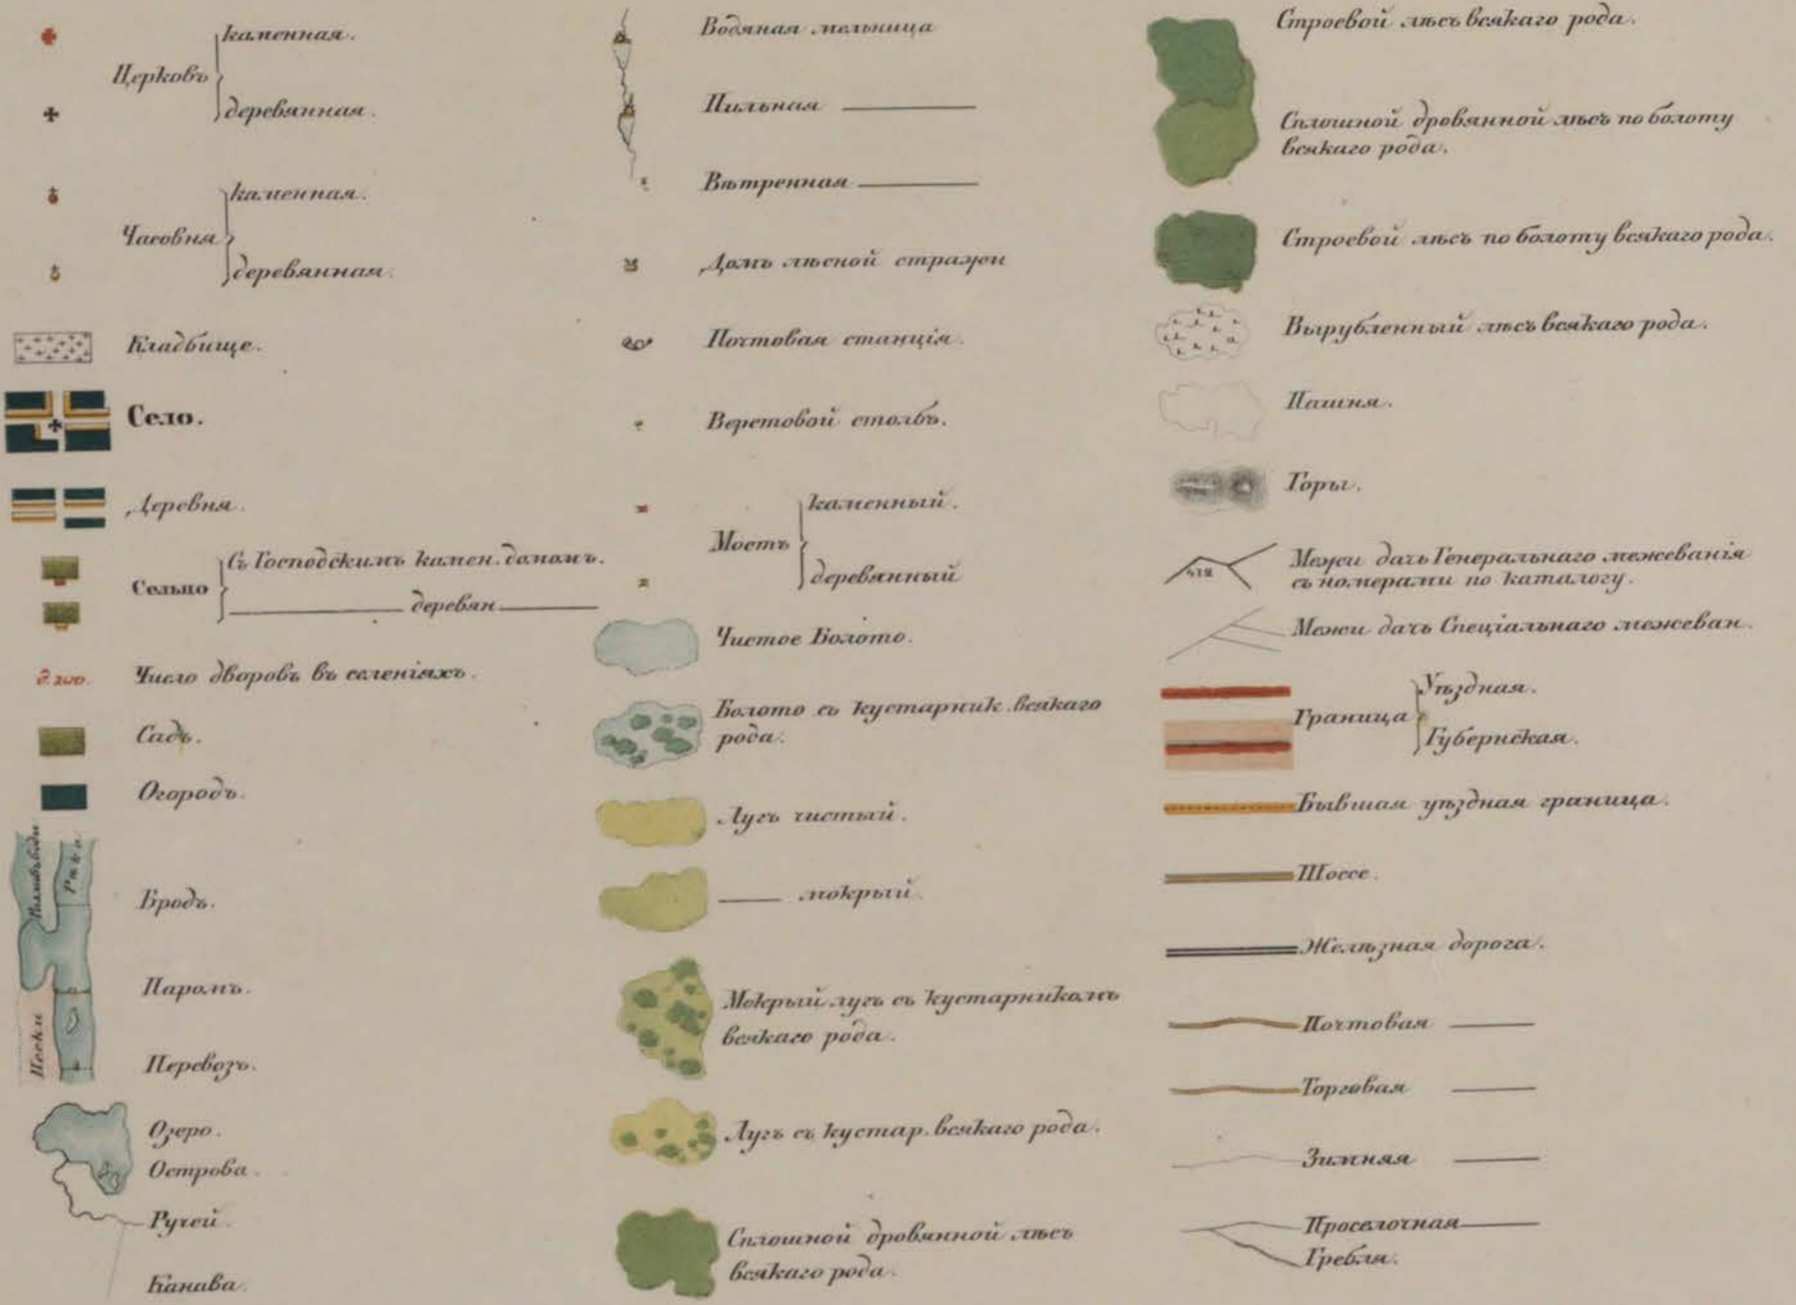 каменная.
Церковь
деревянная.
каменная.
Часовня
деревянная.
Кладбище.
Село.
Деревня.
Съ Господскимъ камен. домомъ.
Сельцо
деревян
д. 200.
Число дворовъ въ селеніяхъ.
Садъ.
Огородъ.
Рѣка
Бродъ.
Паромъ.
Пески
Перевозъ.
Озеро.
Острова.
Ручей.
Канава.
Водяная мельница
Пильная
Вѣтренная
Домъ лѣсной стражи
Почтовая станція.
Верстовой столбъ.
каменный.
Мостъ
деревянный
Чистое Болото.
Болото съ кустарник. всякаго
рода.
Лугъ чистый.
мокрый.
Мокрый лугъ съ кустарникомъ
всякаго рода.
Лугъ съ кустар. всякаго рода.
Сплошной дровянной лѣсъ
всякаго рода.
Строевой лѣсъ всякаго рода.
Сплошной дровянной лѣсъ по болоту
всякаго рода.
Строевой лѣсъ по болоту всякаго рода.
Вырубленный лѣсъ всякаго рода.
Пашня.
Горы.
412
Межи дачъ Генеральнаго межеванія
съ номерами по каталогу.
Межи дачъ Спеціальнаго межеван.
Уѣздная.
Граница
Губернская.
Бывшая уѣздная граница.
Шоссе.
Желѣзная дорога.
Почтовая
Торговая
Зимняя
Проселочная
Гребля.